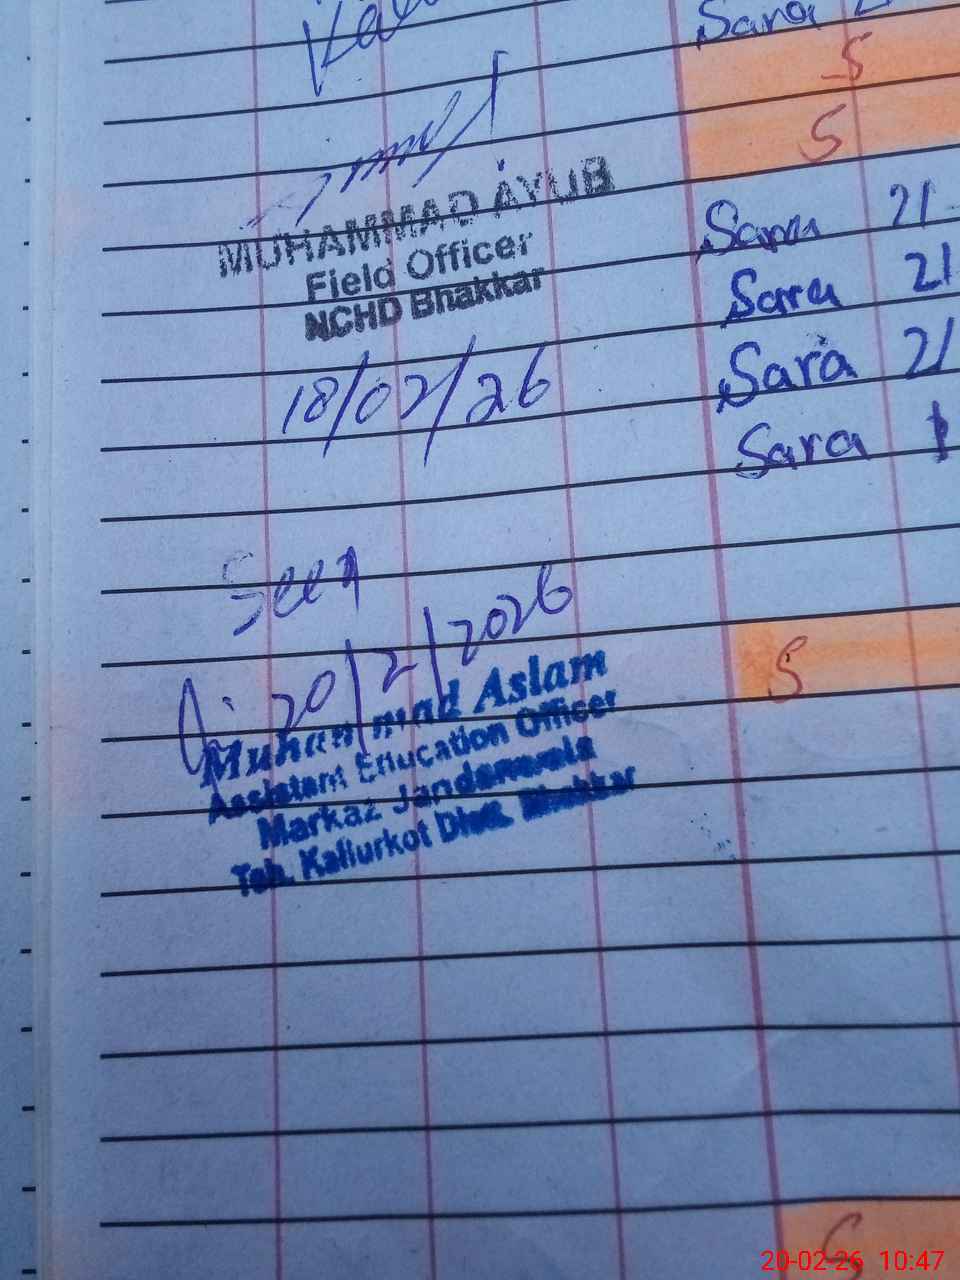 Sara 2
S
S
MUHAMMAD AYUB
Field Officer
NCHD Bhakkar
Sara 21
Sara 21
18/02/26
Sara 21
Sara
Seen
20/2/2026
S
Muhammad Aslam
Assistant Education Officer
Markaz Jandanwala
Teh. Kallurkot Distt. Bhakkar
S
20-02-26 10:47